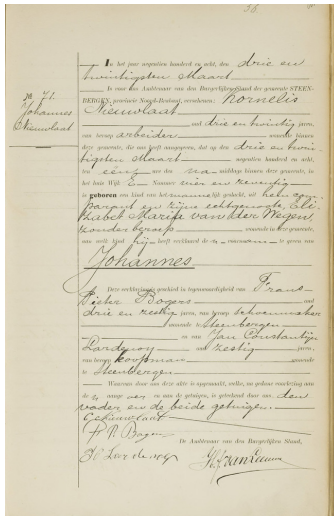 No 71.
Johannes
Nieuwlaat
In het jaar negentien honderd en acht, den drie en
twintigsten Maart
is voor ons Ambtenaar van den Burgerlijken Stand der gemeente STEEN-
BERGEN, provincie Noord-Brabant, verschenen: Kornelis
Nieuwlaat
oud drie en twintig jaren,
van beroep arbeider wonende binnen
deze gemeente, die ons heeft aangegeven, dat op den drie en twin-
tigsten Maart negentien honderd acht,
ten één ure des na middags binnen deze gemeente, in
het huis Wijk E Nummer een en zeventig
is geboren een kind van het mannelijk geslacht, uit hem com-
parant en zijne echtgenoote, Eli-
zabet Maria van der Wegen,
zonder beroep wonende in deze gemeente,
aan welk kind hij heeft verklaard de voornaam te geven van
Johannes
Deze verklaring is geschied in tegenwoordigheid van Frans
Pieter Bogers oud
drie en zestig jaren, van beroep schoenmaker
wonende te Steenbergen
en van Jan Constantijn
oud zestig jaren,
van beroep koopman wonende
te Steenbergen
Waarvan door ons deze akte is opgemaakt, welke, na gedane voorlezing aan
en aan de getuigen, is geteekend door ons, den
vader en de beide getuigen.
Nieuwlaat
P. Bogers
De Ambtenaar van den Burgerlijken Stand,